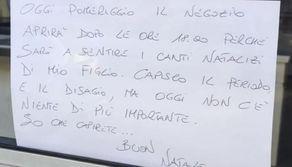 OGGI POMERIGGIO IL NEGOZIO
APRIRÀ DOPO LE ORE 18.00 PERCHÉ
SARÒ A SENTIRE I CANTI NATALIZI
DI MIO FIGLIO. CAPISCO IL PERIODO
E IL DISAGIO, MA OGGI NON C'È
NIENTE DI PIÙ IMPORTANTE.
SO CHE CAPIRETE...
BUON
NATALE